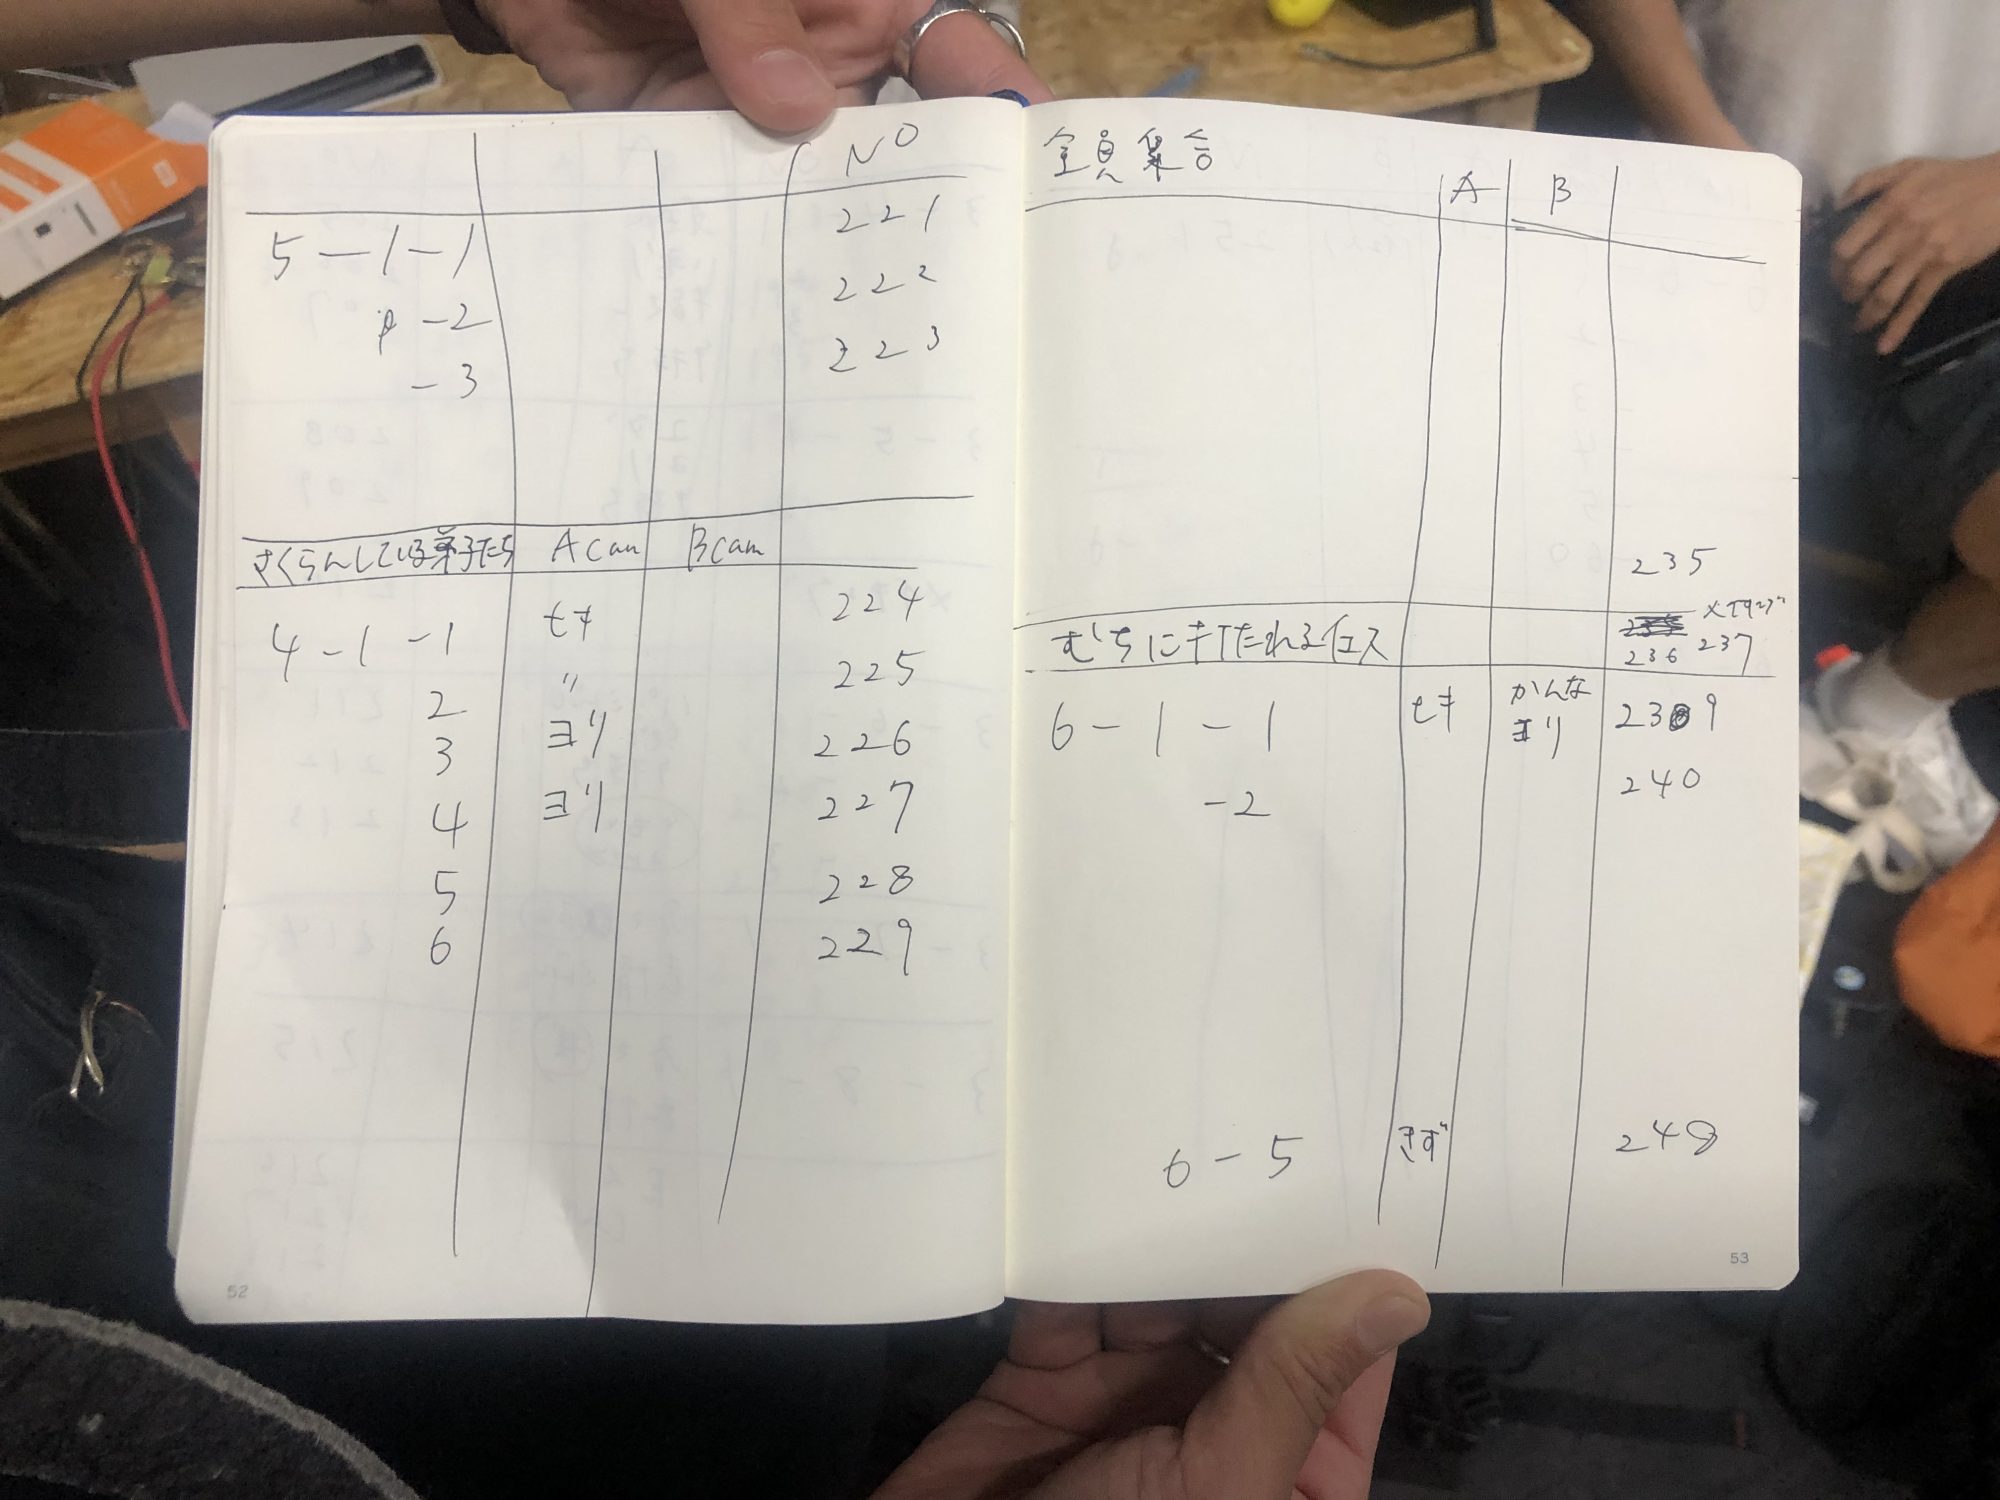 NO
5-1-1 221
-2 222
-3 223
さくらんしている弟子たち Acam Bcam
4-1-1 セキ 224
2 〃 225
3 ヨリ 226
4 ヨリ 227
5 228
6 229
52
全員集合
A B
235
むちにキTたれるイエス 236 237
6-1-1 セキ かんな 239
ヨリ
-2 240
6-5 きず 248
53